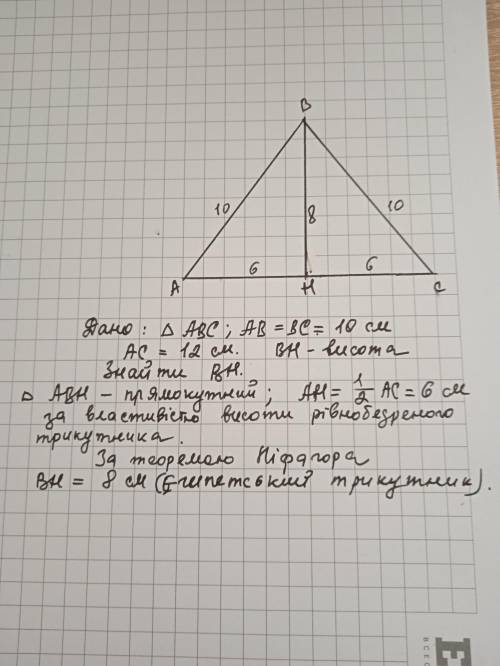 B
10
8
10
6
6
A
H
C
Дано: △ ABC; AB = BC = 10 см
AC = 12 см. BH - висота
Знайти BH.
△ ABH - прямокутний; AH = 1/2 AC = 6 см
за властивістю висоти рівнобедреного
трикутника.
За теоремою Піфагора
BH = 8 см (Єгипетський трикутник).